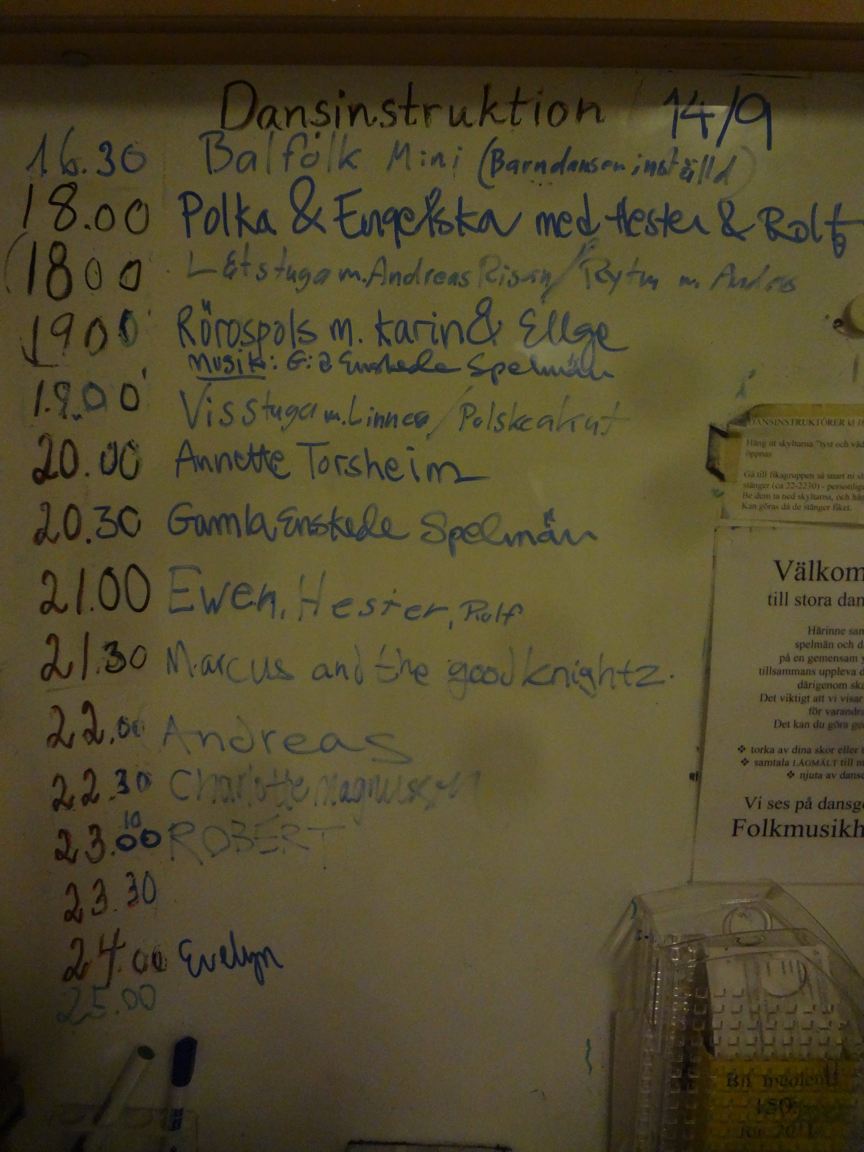 Dansinstruktion 14/9
16.30 Balfolk Mini (Barndansen inställd)
18.00 Polka & Engelska med Hester & Rolf
(1800 Låtstuga m. Andreas / Rytm m.
1900 Rörospols m. Karin & Ellge
Musik: G:a Enskede Spelmän
19.00 Visstuga m. Linnea / Polskeakut
20.00 Annette Torsheim
20.30 Gamla Enskede Spelmän
21.00 Ewen, Hester, Rolf
21.30 Marcus and the good knightz.
22.00 Andreas
22.30 Charlotte Magnusson
10
23.00 ROBERT
23.30
24.00 Evelyn
25.00
DANSINSTRUKTÖRER kl
Häng ut skyltarna "tyst och
öppnas
Gå till fikagruppen så snart ni
stänger (ca 22-2230) - personlig
Be dem ta ned skyltarna, och
Kan göras då de stänger fiket.
Välkom
till stora dan
Härinne sam
spelmän och d
på en gemensam y
tillsammans uppleva d
därigenom ska
Det viktigt att vi visar
för varandra
Det kan du göra ge
❖ torka av dina skor eller
❖ samtala LÅGMÄLT till m
❖ njuta av dans
Vi ses på dansg
Folkmusikh